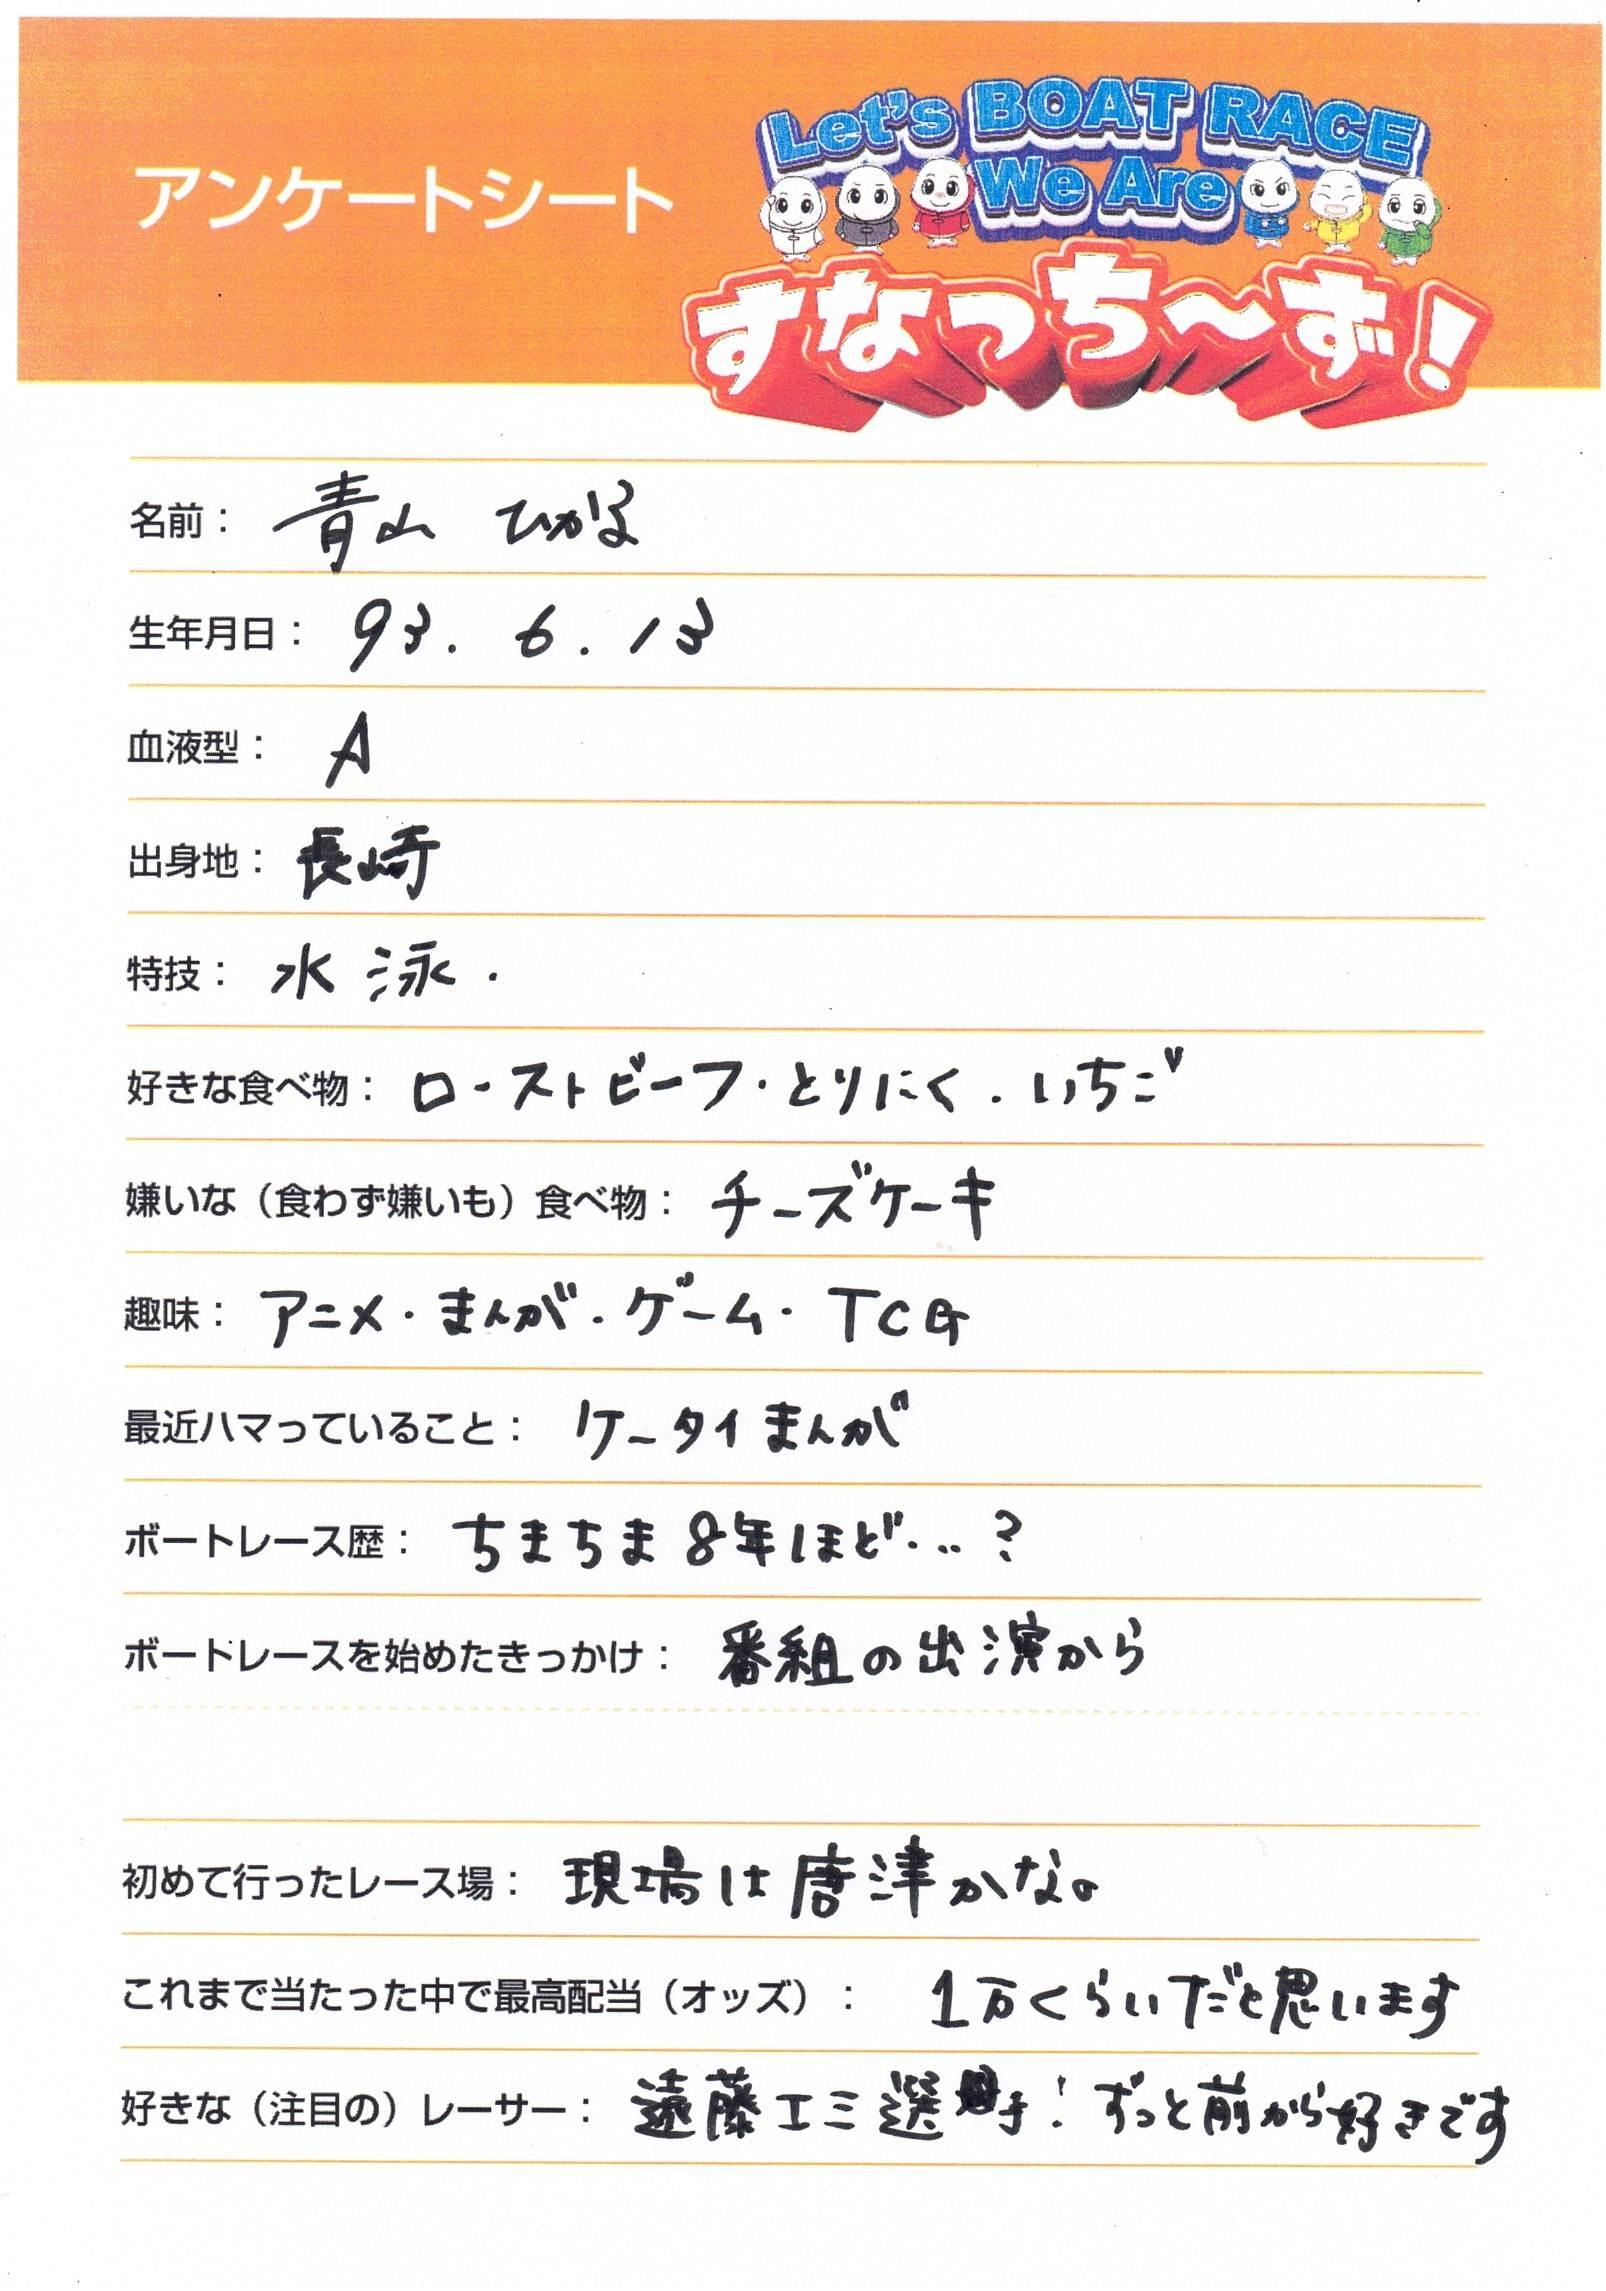 Let's BOAT RACE
アンケートシート
We Are
すなっち〜ず!
名前: 青山 ひかる
生年月日: 93. 6. 13
血液型: A
出身地: 長崎
特技: 水泳.
好きな食べ物: ローストビーフ・とりにく・いちご
嫌いな(食わず嫌いも)食べ物: チーズケーキ
趣味: アニメ・まんが・ゲーム・TCG
最近ハマっていること: ケータイまんが
ボートレース歴: ちまちま8年ほど…?
ボートレースを始めたきっかけ: 番組の出演から
初めて行ったレース場: 現場は唐津かな。
これまで当たった中で最高配当(オッズ): 1万くらいだと思います
好きな(注目の)レーサー: 遠藤エミ選手!ずっと前から好きです